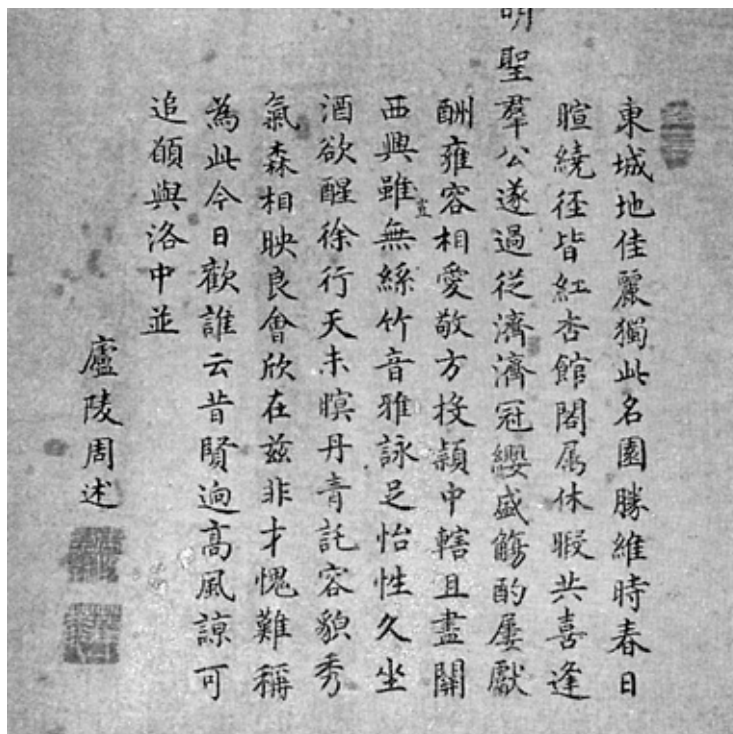 東城地佳麗獨此名園勝維時春日
暄繞徑皆紅杏館閣属休暇共喜逢
明聖羣公遂過從濟濟冠纓盛觴酌屢獻
酬雍容相愛敬方投頴中轄且盡關
西興雖無絲竹音雅詠足怡性久坐
酒欲醒徐行天未暝丹青託容貌秀
氣森相映良會欣在茲非才愧難稱
為此今日歡誰云昔賢逈高風諒可
追與洛中並
廬陵周述